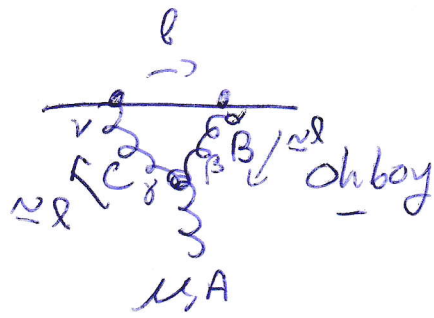 l
ν
C γ β B ~l
~l
Oh boy
μ, A